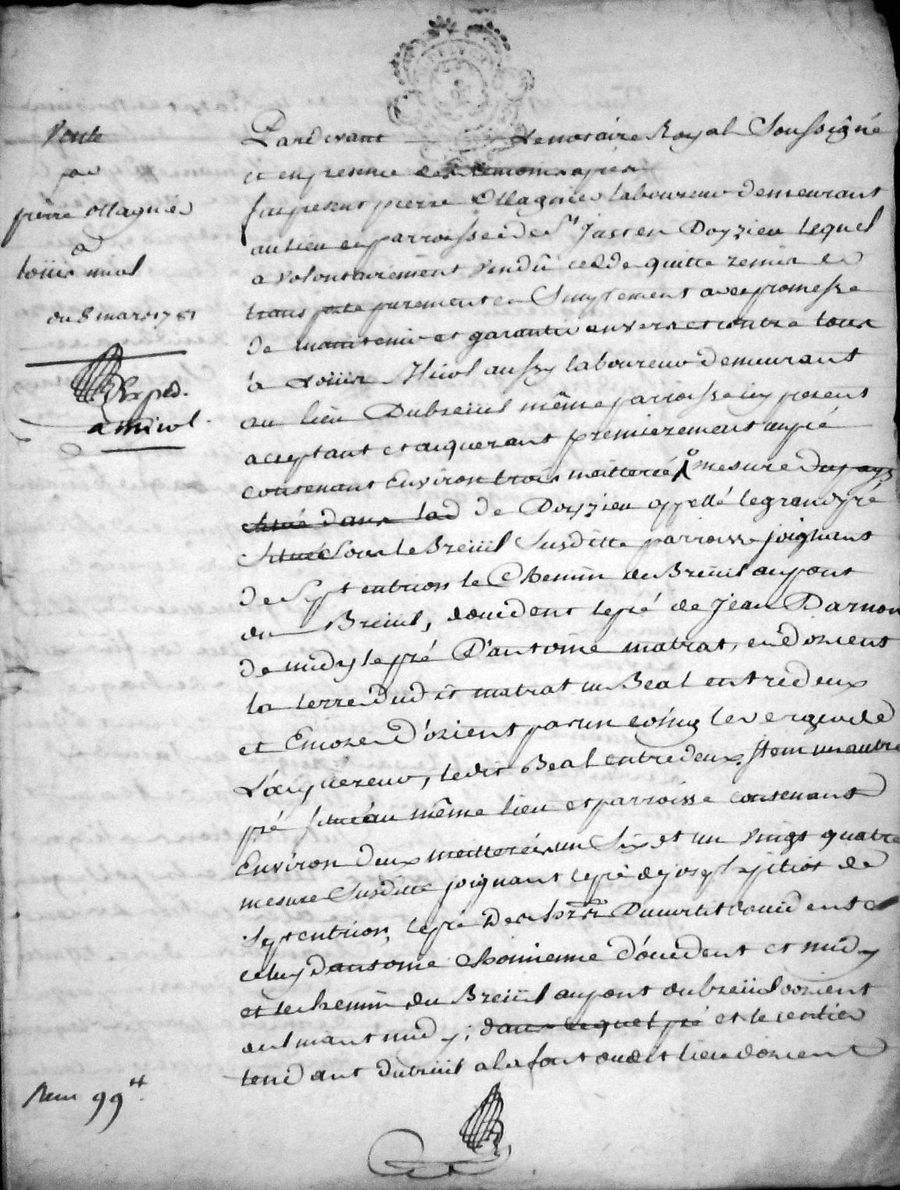 Vente
par
pierre ollagnier
a
Loüis miol
du 8 mars 1751
Exped.
a miol.
Pardevant Le notaire Royal Soussigné
et en presence des temoins apres
fut present pierre Ollagnier laboureur demeurant
au lieu et parroisse de St Just en Doyzieu lequel
a volontairement vendû cede quitte remis et
transporte purement et Simplement avec promesse
de maintenir et garantir envers et contre tous
à Loüis Miol aussy laboureur demeurant
au lieu Dubreüil même parroisse icy present
acceptant et aquerant premierement un pré
contenant Environ trois meitterée mesure du pays
situé dans lad de Doyzieu appellé le grand pré
Situé Sous le Breüil Susditte parroisse joignant
de Septentrion le Chemin du Breüil au pont
du Breüil, d'occident le pré de Jean Darnon
de midy le pré D'antoine matrat, et D'orient
la terre dudit matrat un Beal entredeux
et Encore D'orient par un coing le verger de
L'acquereur, ledit Beal entredeux. Item un autre
pré situé au même lieu et parroisse contenant
Environ deux meitterée un Six et un vingt quatre
mesure Susditte joignant le pré de
Septentrion, le pré Des occident
celuy D'antoine Choinienne d'occident et midy
et le chemin du Breüil au pont du breüil d'orient
midy; dans lequel pré et le sentier
tendant du breüil a la font dudit lieu d'orient
99 tt